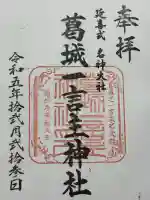 奉拝
延喜式 名神大社
葛城一言主神社
令和五年拾弐月弐拾参日